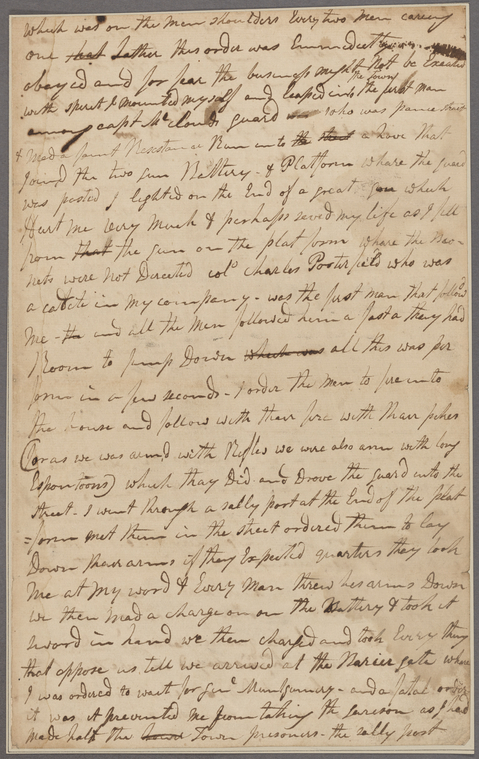 which was on the men shoulders Every two men carieng
one that Lather this order was Emmedeetly
obayed and for fear the business might Not be Exacuted
with spirit I mounted myself and leaped into the town the first man
among capt McClouds guard who was panic struck
& Made a faint Resistance Run into the street a hove that
Joined the two gun Battery & Platform whare the guard
was posted I lighted on the End of a great gun which
Hurt me very Much & perhaps saved my life as I fell
from that the gun on the plat form whare the Bao-
nets were Not Derected colo Charles Poorterfield who was
a cadete in my company - was the first man that follow'd
me - the and all the Men followed him a fast a they had
Room to Jump Down which was all this was per
form in a few seconds - I order the men to fire into
the house and follow with thair fire with thair pikes
(for as we was armd with Rifles we were also arm with long
Espontoons) which thay Did and Drove the guard into the
street - I went through a sally port at the End of the plat
=form met them in the street ordered them to lay
Down thair arms if they Expected quarters they took
me at my word & Every man threw his arms Down
we then Mad a charge on on the Battery & took it
sword in hand we then charged and took Every thing
that oppose us tell we arrived at the Barier gate whare
I was ordered to wait for Genl Muntgumry - and a fatal order
it was it prevented me from taking the Garison as I had
made half the town Town prisoners - the sally port